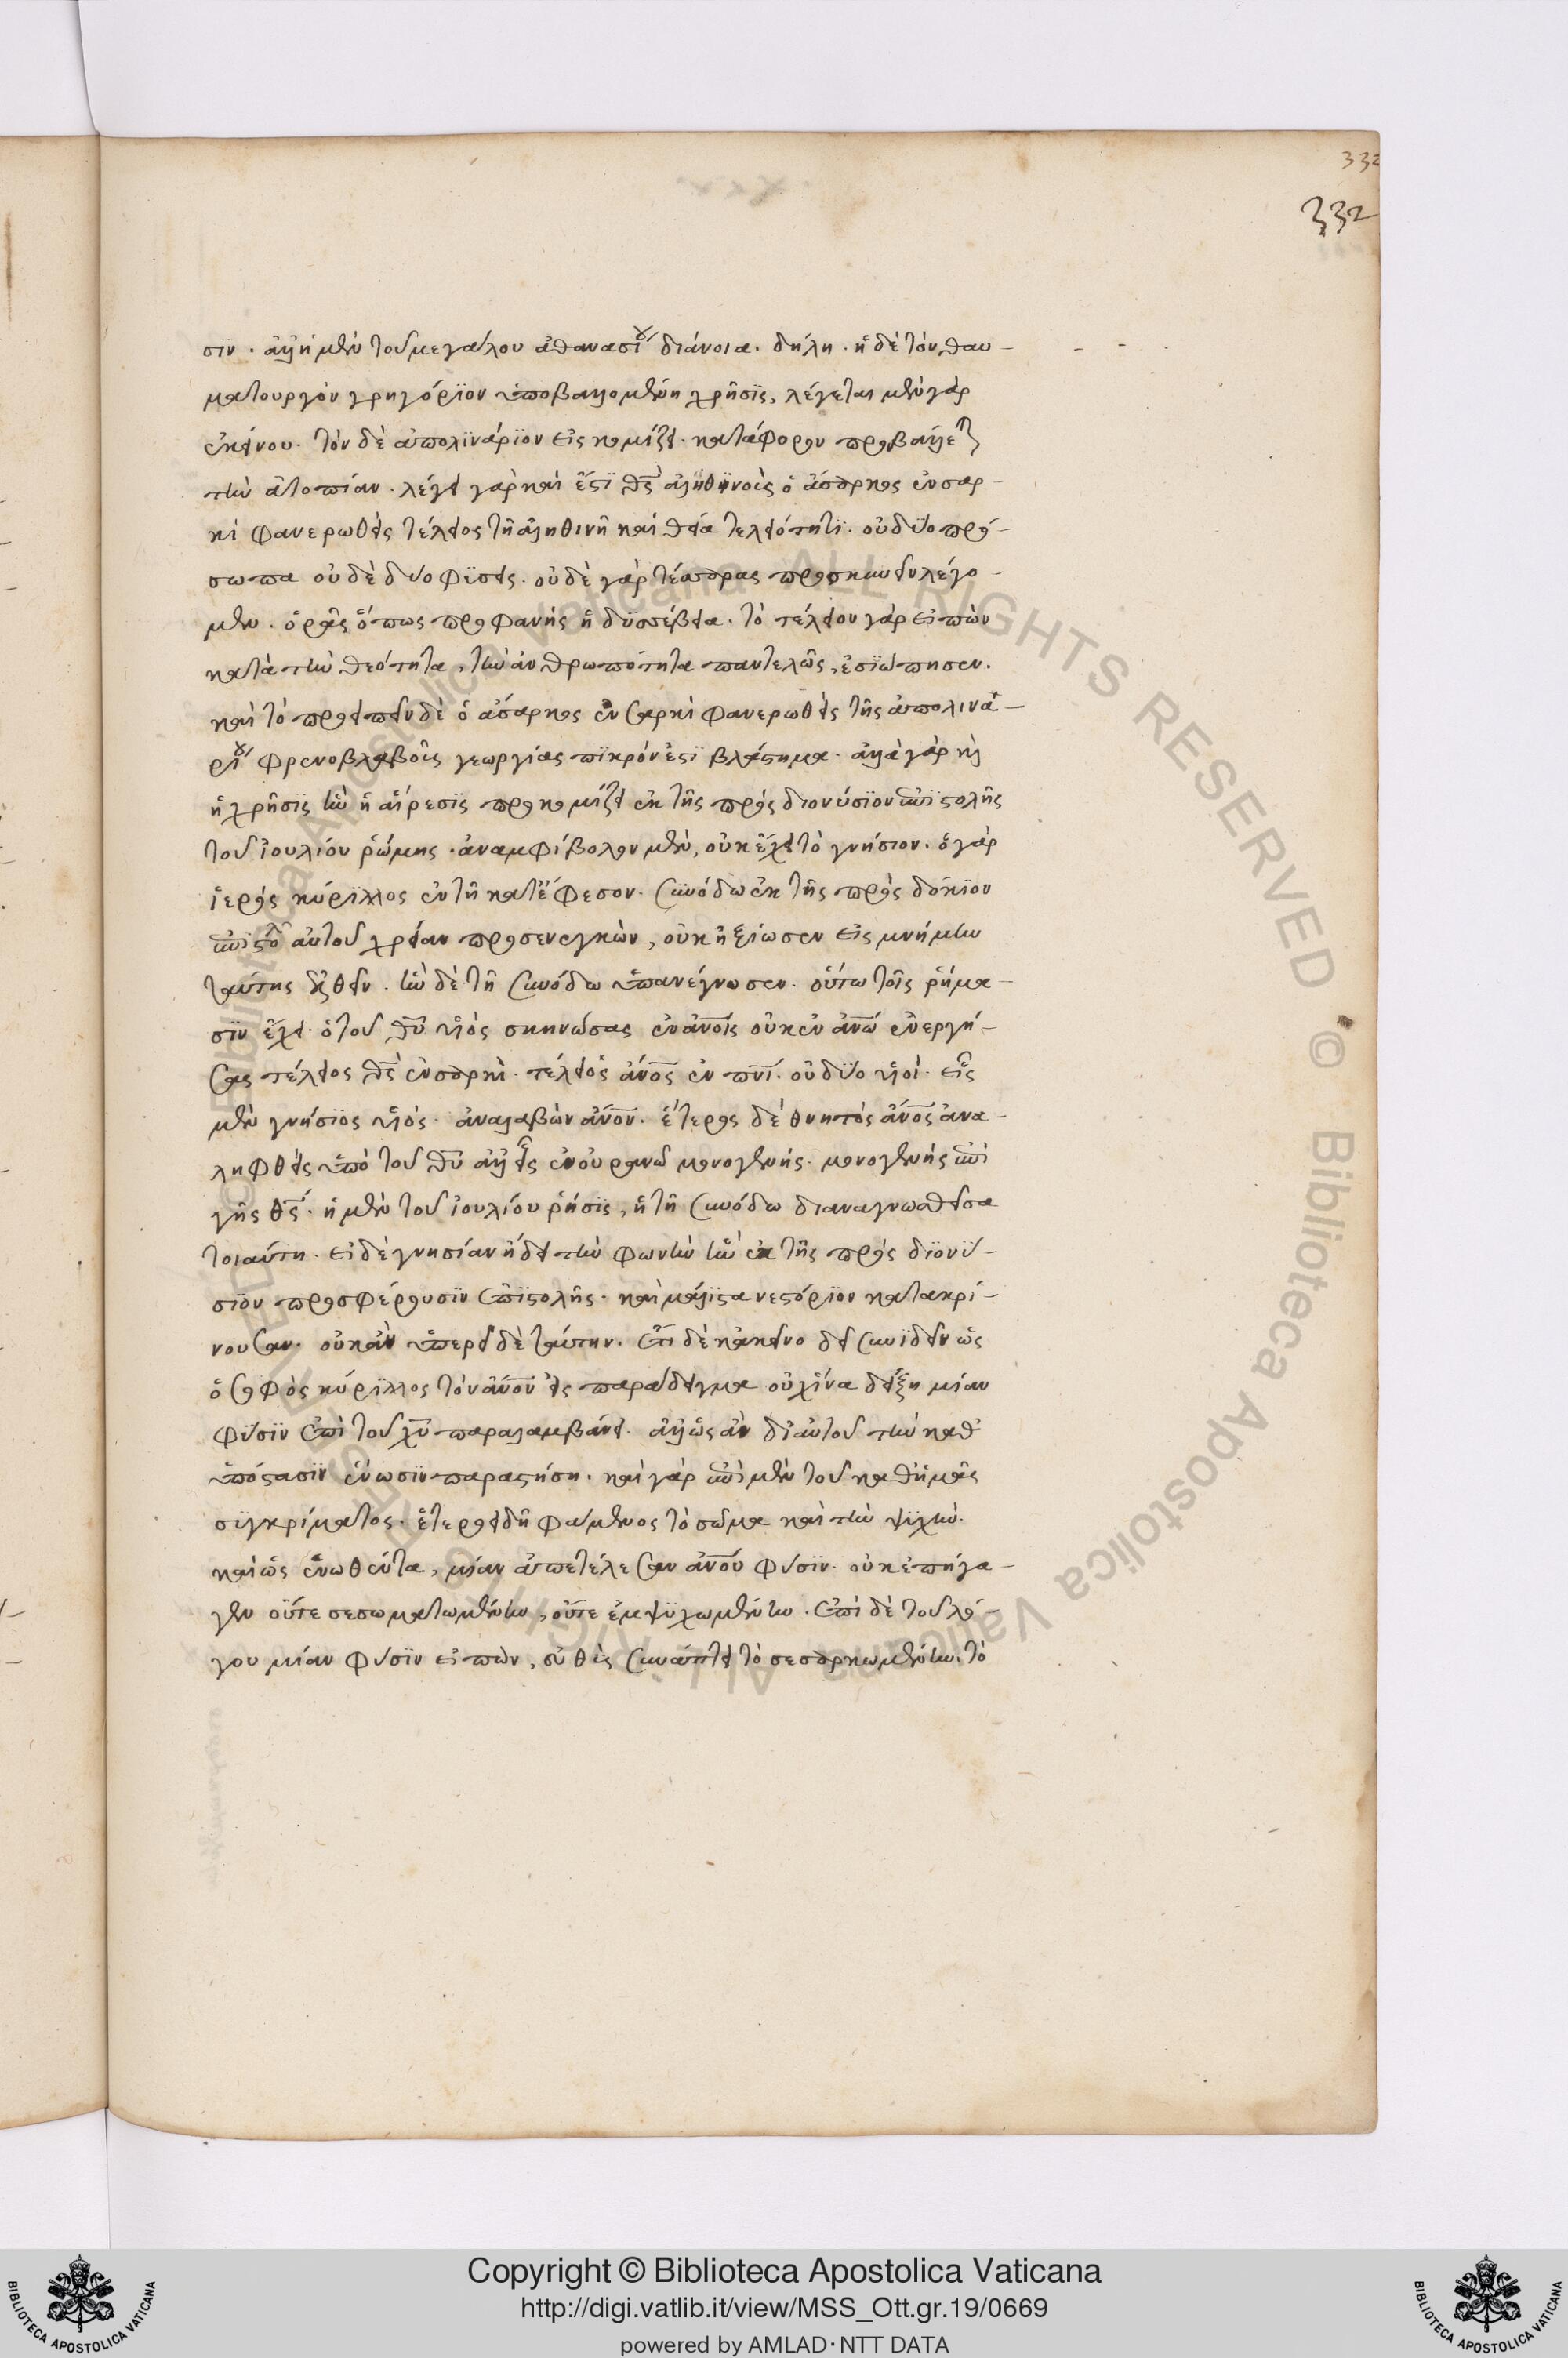 332
332
σϊν. ἀλλ' ἡ μὲν τοῦ μεγάλου ἀθανασίου διάνοια. δήλη. ἡ δὲ τὸν θαυ-
ματουργὸν γρηγόριον ὑποβαλλομένη χρῆσϊς, λέγεται μὲν γὰρ
ἐκείνου. τὸν δὲ ἀπολϊνάρϊον εἰσκομίζει. κατάφορον προβάλλεται
τὴν ἀτοπίαν. λέγει γὰρ καὶ ἔστϊ θς ἀληθϊνὸς ὁ ἄσαρκος ἐν σαρ-
κὶ φανερωθεὶς τέλειος τῆ ἀληθινῆ καὶ θεία τελειότητϊ. οὐ δύο πρό-
σωπα οὐδὲ δύο φύσεις. οὐδὲ γὰρ τέσσαρας προσκυνεῖν λέγο-
μεν. ὁρᾶς ὅπως προφανὴς ἡ δυσσέβεια. τὸ τέλειον γὰρ εἰπὼν
κατὰ τὴν θεότητα, τὴν ἀνθρωπότητα παντελῶς, ἐσϊώπησεν.
καὶ τὸ προειπεῖν δὲ ὁ ἄσαρκος ἐν σαρκὶ φανερωθεὶς τῆς ἀπολινα-
ρίου φρενοβλαβοῦς γεωργίας πϊκρόν ἐστϊ βλάστημα. ἀλλὰ γὰρ καὶ
ἡ χρῆσϊς ἣν ἡ αἵρεσϊς προκομίζει ἐκ τῆς πρὸς διονύσϊον ἐπϊστολῆς
τοῦ ἰουλίου ῥώμης. ἀναμφίβολον μὲν, οὐκ ἔχει τὸ γνήσιον. ὁ γὰρ
ἱερὸς κύρϊλλος ἐν τῆ κατ' ἔφεσον. συνόδω ἐκ τῆς πρὸς δόκϊον
ἐπϊστολ αὐτοῦ χρείαν προσενεγκὼν, οὐκ ἠξίωσεν εἰς μνήμην
ταύτης ἐλθεῖν. ἣν δὲ τῆ συνόδω ὑπανέγνωσεν. οὕτω τοῖς ῥήμα-
σϊν ἔχει. ὁ τοῦ θυ υἱὸς σκηνώσας ἐν ανοις οὐκ ἐν ανω ἐνεργή-
σας τέλειος θς ἐν σαρκὶ. τέλειος ανος ἐν πνι. οὐ δύο υἱοὶ. εἷς
μὲν γνήσϊος υἱός. ἀναλαβὼν ανον. ἕτερος δὲ θνητὸς ανος ἀνα-
ληφθεὶς ὑπὸ τοῦ θυ ἀλλ' εἷς ἐν οὐρανῶ μονογενής. μονογενὴς ἐπὶ
γῆς θς. ἡ μὲν τοῦ ἰουλίου ῥῆσϊς, ἡ τῆ συνόδω διαναγνωσθεῖσα
τοιαύτη. εἰ δὲ γνησίαν ἤδει τὴν φωνὴν ἣν ἐκ τῆς πρὸς διονϋ-
σϊον προσφέρουσϊν ἐπϊστολῆς. καὶ μάλϊστα νεστόριον κατακρί-
νουσαν. οὐκ ἂν ὑπερεῖδε ταύτην. ἔτι δὲ κἀκεῖνο δεῖ συνϊδεῖν ὡς
ὁ σοφὸς κύρϊλλος τὸν ανον εἰς παράδειγμα οὐχ ἵνα δείξη μίαν
φύσϊν ἐπὶ τοῦ χυ παραλαμβάνει. ἀλλ' ὡς ἂν δι' αὐτοῦ τὴν καθ'
ὑπόστασϊν ἕνωσϊν παραστήση. καὶ γὰρ ἐπὶ μὲν τοῦ καθ' ἡμᾶς
σϋγκρίματος. ἑτεροειδῆ φάμενος τὸ σῶμα καὶ τὴν ψϋχὴν.
καὶ ὡς ἑνωθέντα, μίαν ἀπετέλεσαν ανου φύσϊν. οὐκ ἐπήγα-
γεν οὔτε σεσωματωμένην, οὔτε ἐμψϋχωμένην. ἐπὶ δὲ τοῦ λό-
γου μίαν φύσϊν εἰπὼν, εὐθὺς συνάπτει τὸ σεσαρκωμένην. τὸ
Copyright © Biblioteca Apostolica Vaticana
http://digi.vatlib.it/view/MSS_Ott.gr.19/0669
powered by AMLAD·NTT DATA